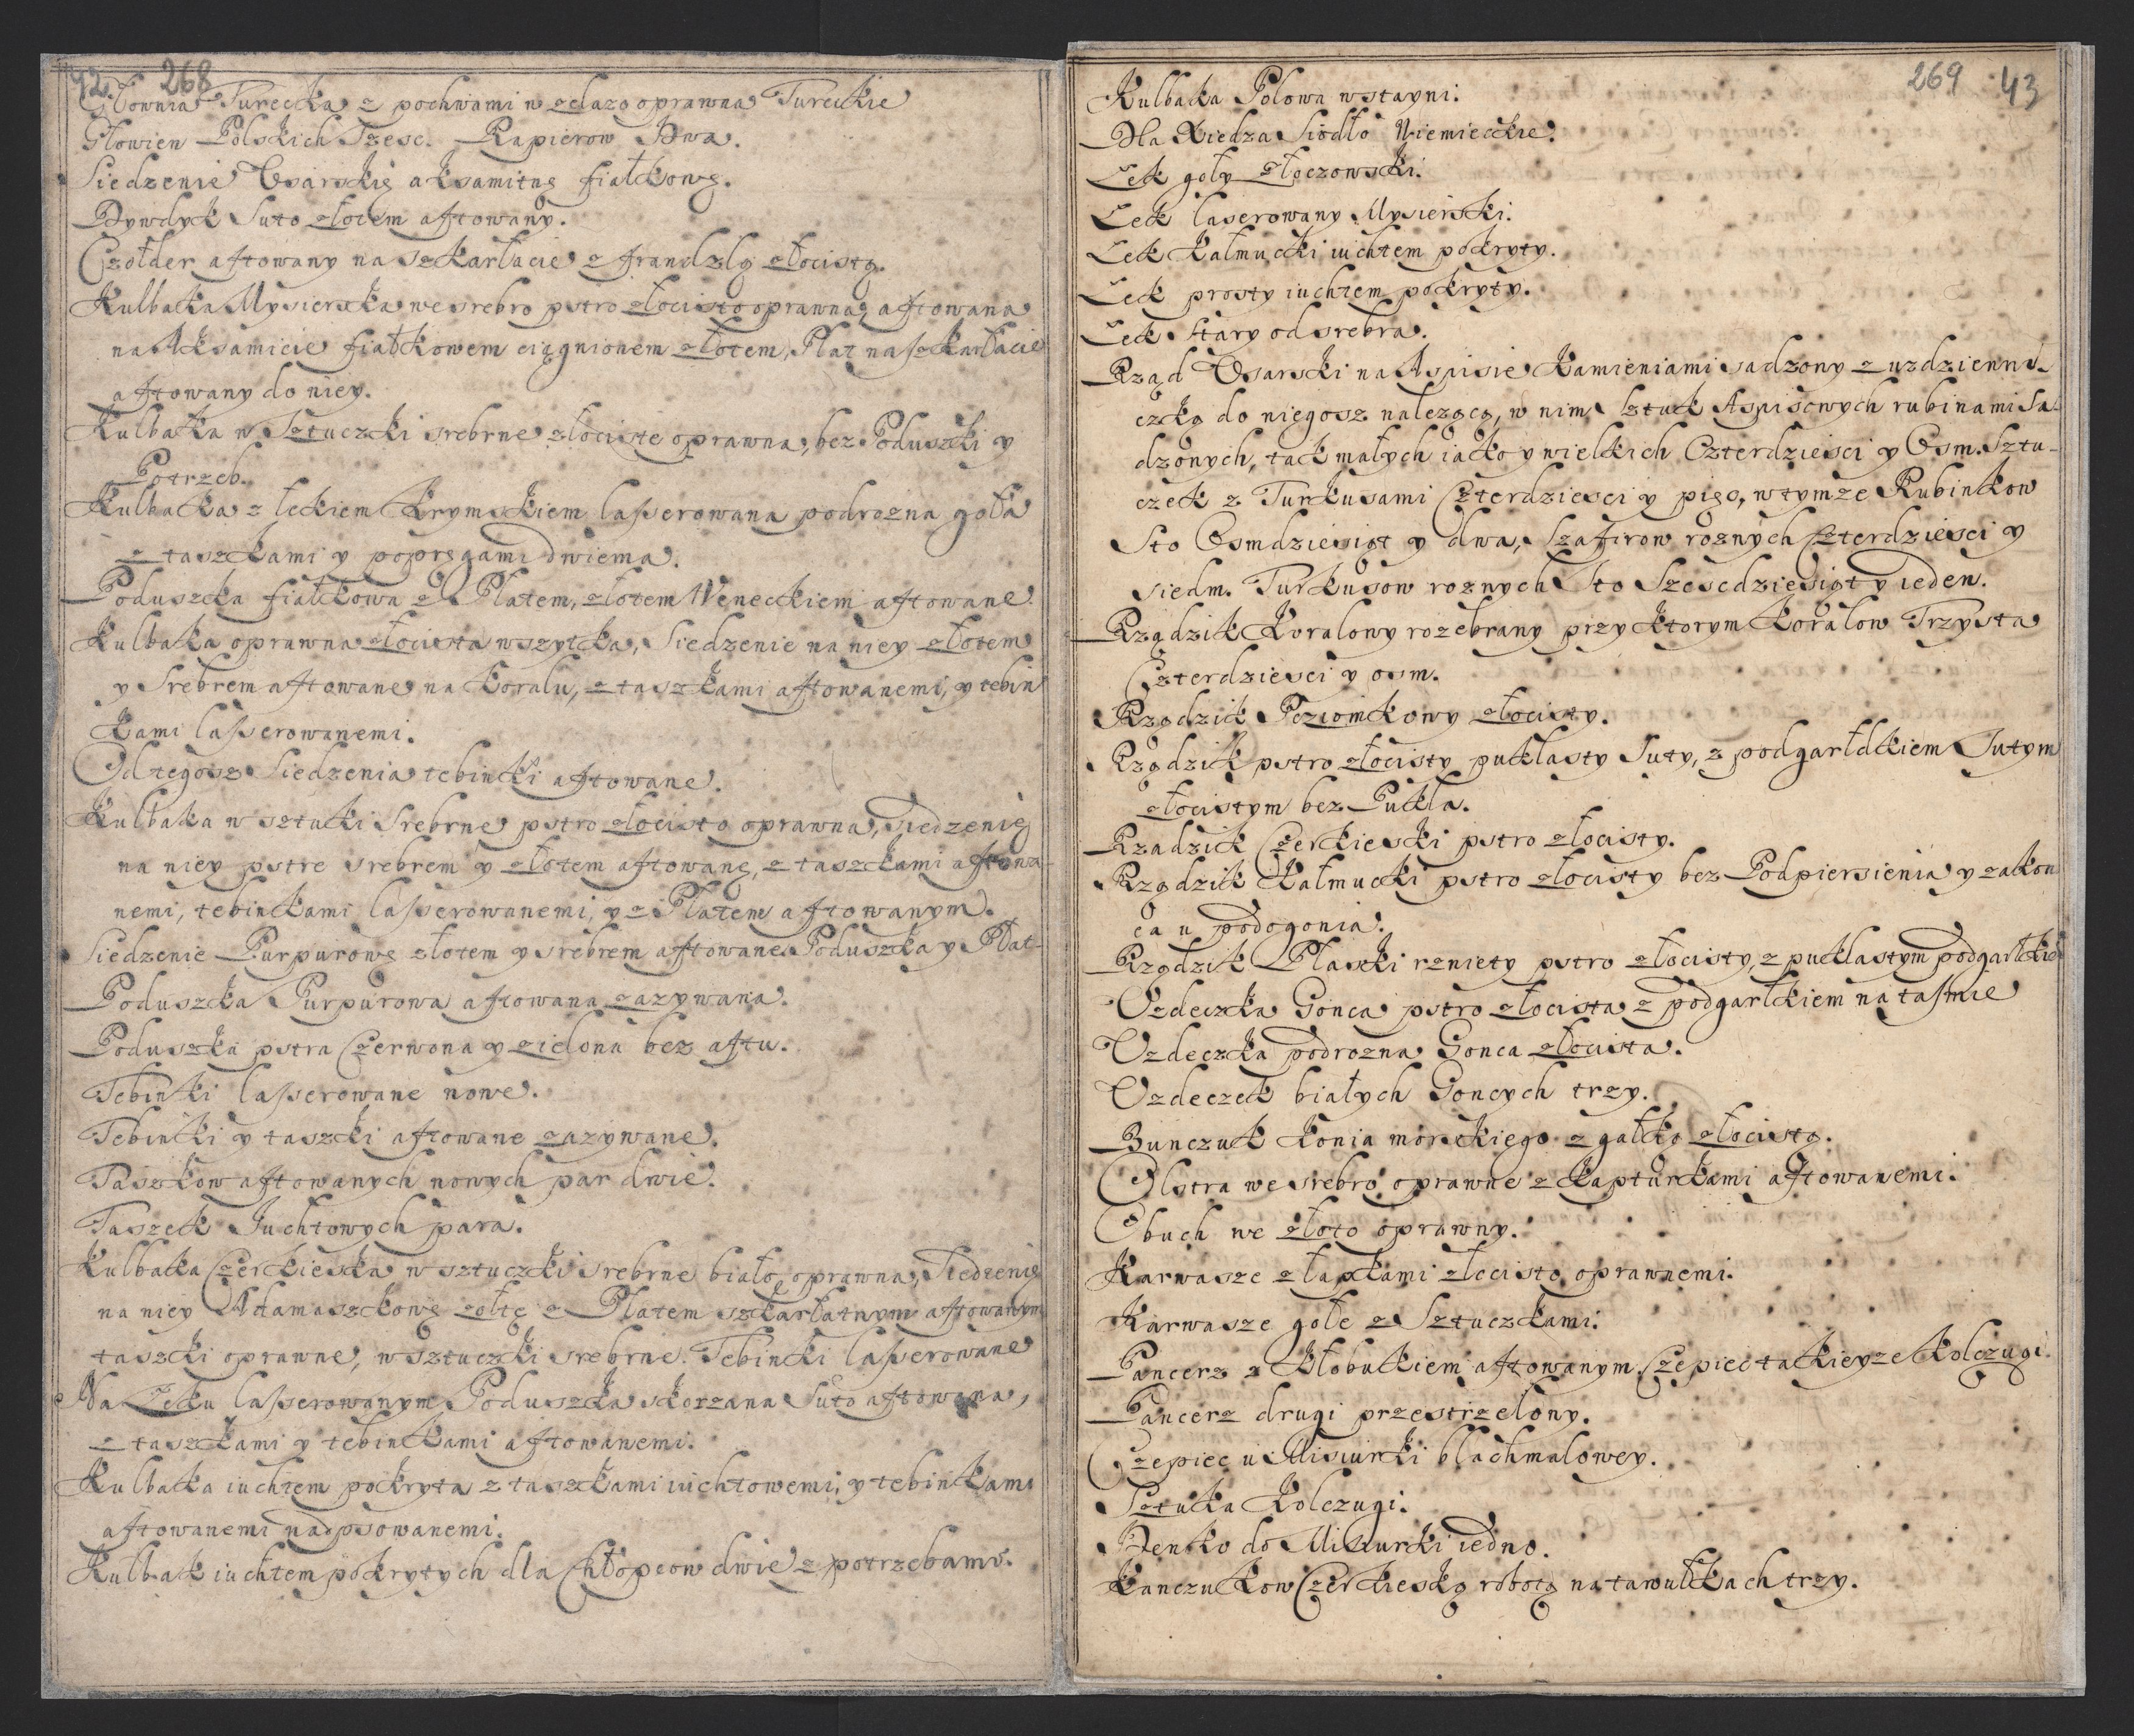 42 268
Głownia Turecka z pochwami w zelazo oprawna Tureckie
Głowien Polskich Szesc. Rapierow Dwa.
Siedzenie Usarskię aksamitnę fiałkowę.
Dywdyck Suto złotem aftowany.
Czołder aftowany na szkarłacie z frandzlą złocistą.
Kulbaka Mysierska we srebro pstro złocisto oprawna, aftowana
na Aksamicie fiałkowem ciągnionem złotem, Płat na szkarłacie
aftowany do niey.
Kulbaka w Sztuczki srebrne złociste oprawna, bez Poduszki y
Potrzeb.
Kulbacka z łękiem Krymskiem laserowana podrozna goła
z taszkami y popręgami dwiema.
Poduszka fiałkowa z Płatem, złotem Weneckiem aftowane.
Kulbaka oprawna złocista wszytka, Siedzenie na niey złotem
y Srebrem aftowane na koralu, z taszkami aftowanemi, y tebin
kami laserowanemi.
Od tegosz Siedzenia tebinki aftowane.
Kulbaka w sztucki Srebrne pstro złocisto oprawna, Siedzenię
na niey pstre srebrem y złotem aftowanę, z taszkami aftowa-
nemi, tebinkami laserowanemi, y z Płatem aftowanym.
Siedzenie Purpurowę złotem y srebrem aftowane Poduszka y Płat-
Poduszka Purpurowa aftowana zazywana.
Poduszka pstra Czerwona y zielona bez aftu.
Tebinki laserowane nowe.
Tebinki y taszki aftowane zazywane.
Taszkow aftowanych nowych par dwie.
Taszeck Juchtowych para.
Kulbaka Czerkieska w sztuczki srebrne biało oprawna, Siedzenię
na niey Adamaszkowę zołtę z Płatem szkarłatnym aftowanym
taszki oprawne, w sztuczki srebrne. Tebincki laserowane
Na Łęku laserowanym Poduszka skorzana Suto aftowana,
z taszkami y tebinkami aftowanemi.
Kulbaka iuchtem pokryta z taszkami iuchtowemi, y tebinkami
aftowanemi nadpsowanemi.
Kulbak iuchtem pokrytych dla Chłopcow dwie z potrzebami.
269 43
Kulbaka Polowa w stayni.
Dla Xiedza Siodło Niemieckie.
Łek goły złoczowski.
Łeck laserowany Mysierski.
Łek Kałmucki iuchtem pokryty.
Łeck prosty iuchtem pokryty.
Łeck stary od srebra.
Rząd Usarski na Aspisie Kamieniami sadzony z uzdzienni-
czką do niegosz nalezącą, w nim Sztuk Aspisowych rubinami Sa-
dzonych, tack małych iako y wielkich Czterdziesci y Osm. Sztu-
czeck z Turkusami Czterdziesci y pięc, w tymze Rubinkow
Sto Osmdziesiąt y dwa, Szafirow roznych Czterdziesci y
siedm. Turkusow roznych Sto Szescdziesiąt y ieden.
Rządzik Koralowy rozebrany przy ktorym Koralow Trzysta
Czterdziesci y osm.
Rządzik Poziomkowy złocisty.
Rządzik pstro złocisty puklasty Suty, z podgarłdkiem Sutym
złocistym bez Puckla.
Rzadzick Czerkieski pstro złocisty.
Rządzik Kałmucki pstro złocisty bez Podpiersienia y zakon
ca u podogonia.
Rządzik Płaski rznięty pstro złocisty, z pucklastym podgarłkie
Uzdeczka Gonca pstro złocista z podgarłkiem na tasmie
Uzdeczka podrozna Gonca złocista.
Uzdeczek białych Goncych trzy.
Bunczuk konia morskiego z gałką złocistą.
Olstra we srebro oprawne z kapturkami aftowanemi.
Obuch we złoto oprawny.
Karwasze z łapkami złocisto oprawnemi.
Karwasze gołe z Sztuczkami.
Pancerz z Kłobukiem aftowanym. Czepiec takieyze Kolczugi.
Pancerz drugi przestrzelony.
Czepiec u Misiurki blachmalowey.
Sztucka Kolczugi.
Denko do Misiurki iedno.
Kanczukow Czerkieską robotą na tawułkach trzy.